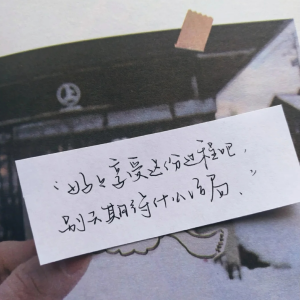 “好好享受这份过程吧，
别太期待什么结局。”